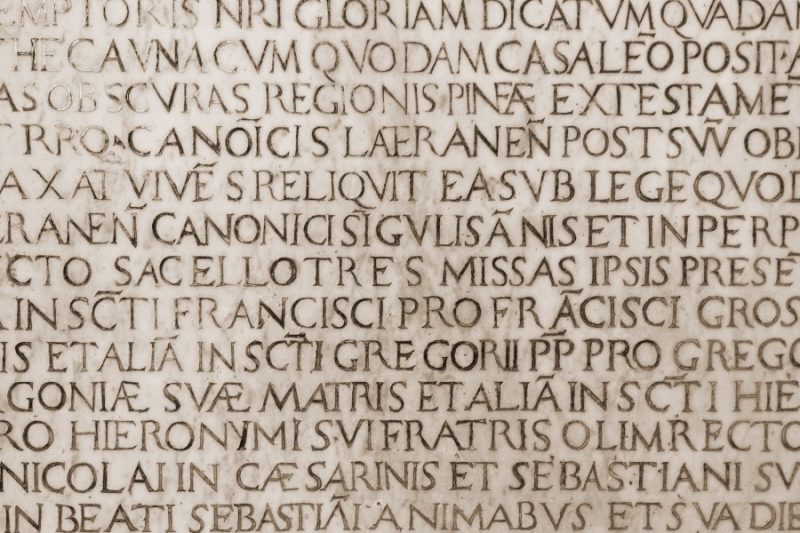 EMPTORIS NRI GLORIAM DICATVM QVADAM
THECA VNACVM QVODAM CASALEÕ POSIT·A
AS OBSCVRAS REGIONIS PINEÆ EXTESTAME
T RRO CANOÏCIS LÆRANEÑ POSTSVV̄ OBI
AXAT VIVĒS RELIQVIT EASVB LEGE QVOD
ERANEÑ CANONICI SĪGVLIS ÃNIS ET IN PERP
ECTO SACELLO TRES MISSAS IPSIS PRESĒ
A IN SC̃TI FRANCISCI PRO FRÃCISCI GROS
IS ET ALIÃ IN SC̃TI GREGORII PP̃ PRO GREGO
GONIÆ SVÆ MATRIS ET ALIÃ IN SC̃TI HIE
RO HIERONYMI SVI FRATRIS OLIM RECTO
NICOLAI IN CÆSARINIS ET SEBASTIANI SV
IN BEATI SEBASTIÃI ANIMABVS ET SVA DIE